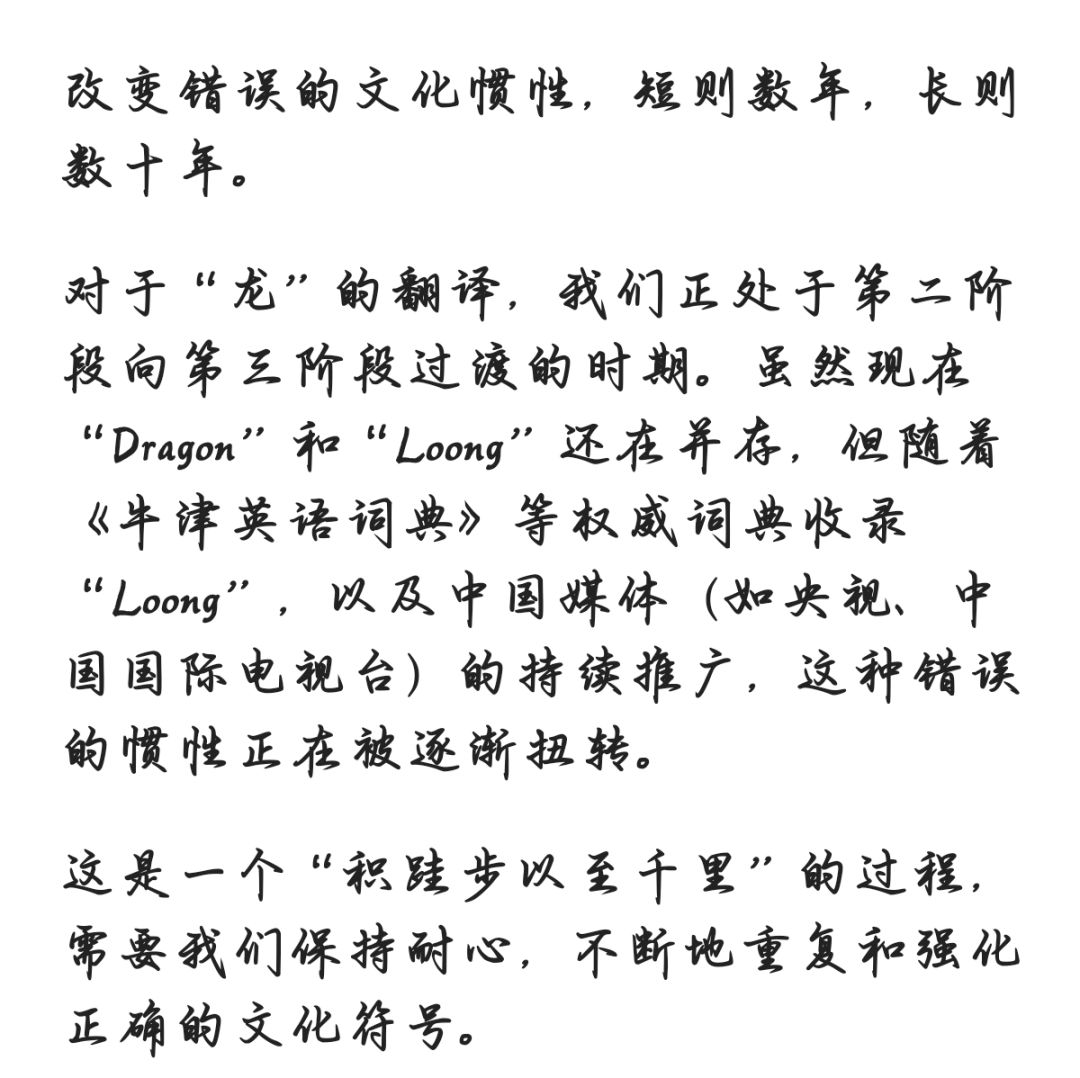 改变错误的文化惯性，短则数年，长则
数十年。
对于“龙”的翻译，我们正处于第二阶
段向第三阶段过渡的时期。虽然现在
“Dragon”和“Loong”还在并存，但随着
《牛津英语词典》等权威词典收录
“Loong”，以及中国媒体（如央视、中
国国际电视台）的持续推广，这种错误
的惯性正在被逐渐扭转。
这是一个“积跬步以至千里”的过程，
需要我们保持耐心，不断地重复和强化
正确的文化符号。